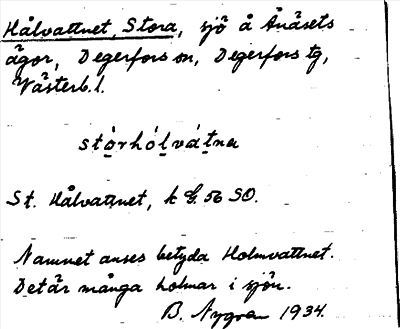 Hålvattnet, Stora, sjö å Ånäsets
ägor, Degerfors sn, Degerfors tg,
Västerb. l.
stòrhólvátna
St. Hålvattnet, k G. 56 SO.
Namnet anses betyda Holmvattnet.
Det är många holmar i sjön.
B. Nygren 1934.